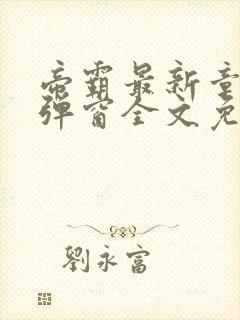 帝霸最新章
弹窗全文免
劉永富